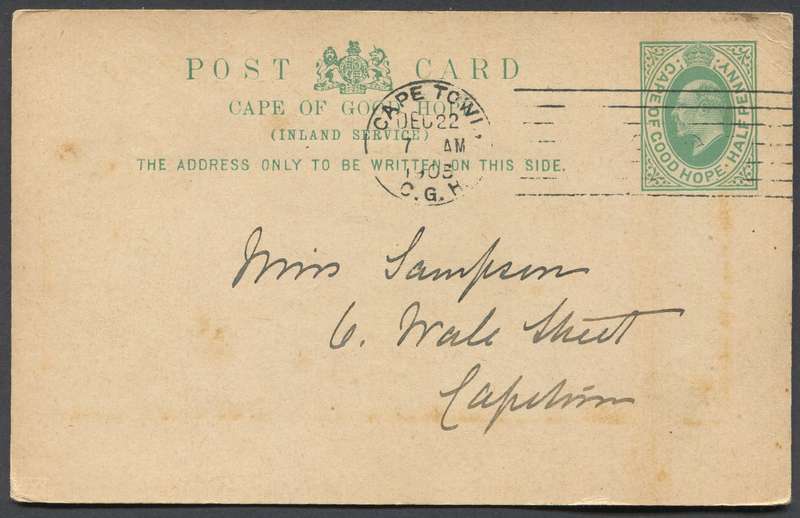 POST CARD
CAPE OF GOOD HOPE
(INLAND SERVICE)
THE ADDRESS ONLY TO BE WRITTEN ON THIS SIDE.
CAPE TOWN
DEC 22
7 AM
1905
C.G.H.
CAPE OF GOOD HOPE · HALF PENNY
Miss Sampson
6. Wale Street
Capetown